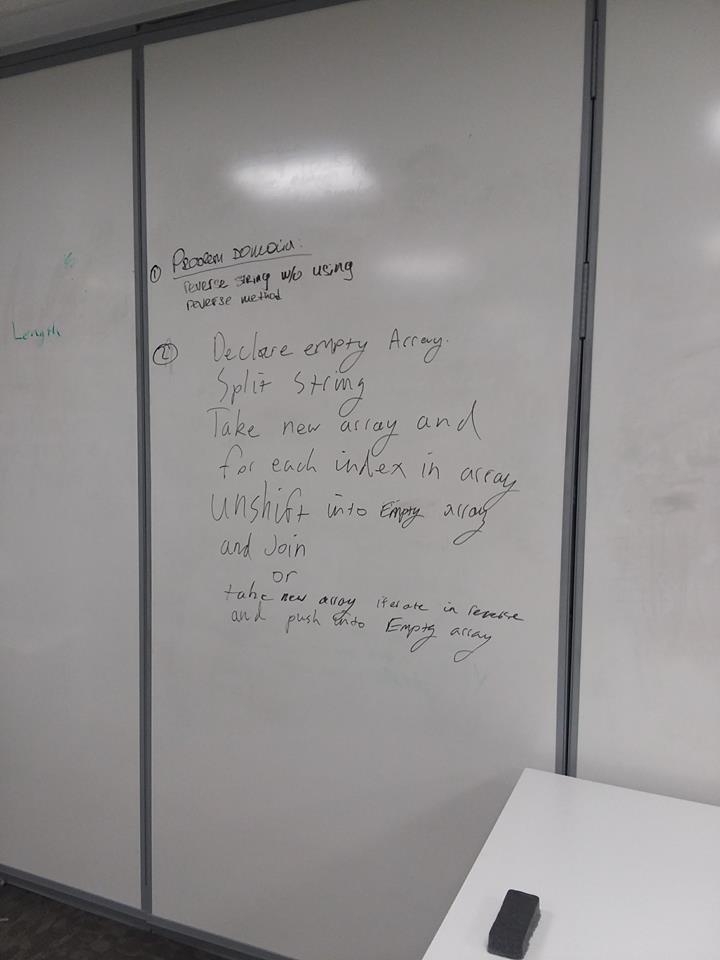 ① Problem Domain:
reverse string w/o using
reverse method
② Declare empty Array.
Split String
Take new array and
for each index in array
unshift into Empty array
and Join
or
take new array iterate in reverse
and push into Empty array
Length